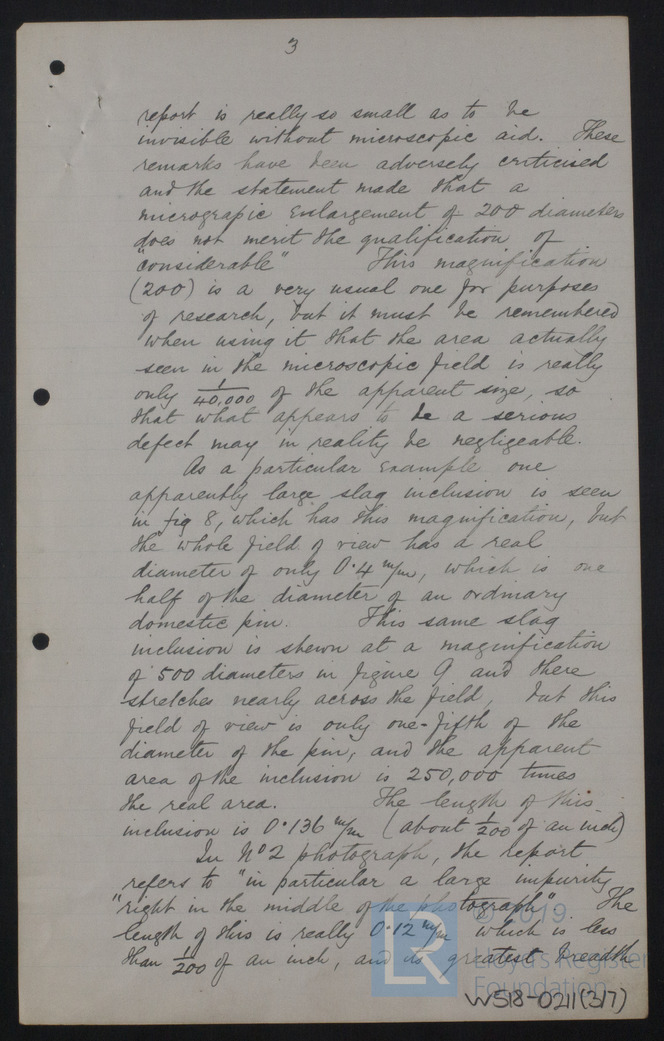 3
report is really so small as to be
invisible without microscopic aid. These
remarks have been adversely criticised
and the statement made that a
micrograpic enlargement of 200 diameters
does not merit the qualification of
"considerable" This magnification
(200) is a very usual one for purposes
of research, but it must be remembered
when using it that the area actually
seen in the microscopic field is really
only 1/40,000 of the apparent size, so
that what appears to be a serious
defect may in reality be negligeable.
As a particular example one
apparently large slag inclusion is seen
in fig 8, which has this magnification, but
the whole field of view has a real
diameter of only 0.4 m/m, which is one
half of the diameter of an ordinary
domestic pin. This same slag
inclusion is shewn at a magnification
of 500 diameters in figure 9 and there
stretches nearly across the field, but this
field of view is only one-fifth of the
diameter of the pin, and the apparent
area of the inclusion is 250,000 times
the real area. The length of this
inclusion is 0.136 m/m (about 1/200 of an inch)
In No 2 photograph, the report
refers to "in particular a large impurity
"right in the middle of the photograph". The
length of this is really 0.12 m/m which is less
than 1/200 of an inch, and its greatest breadth
LR
© 2019
Lloyd's Register
Foundation
W518-0211(3/7)